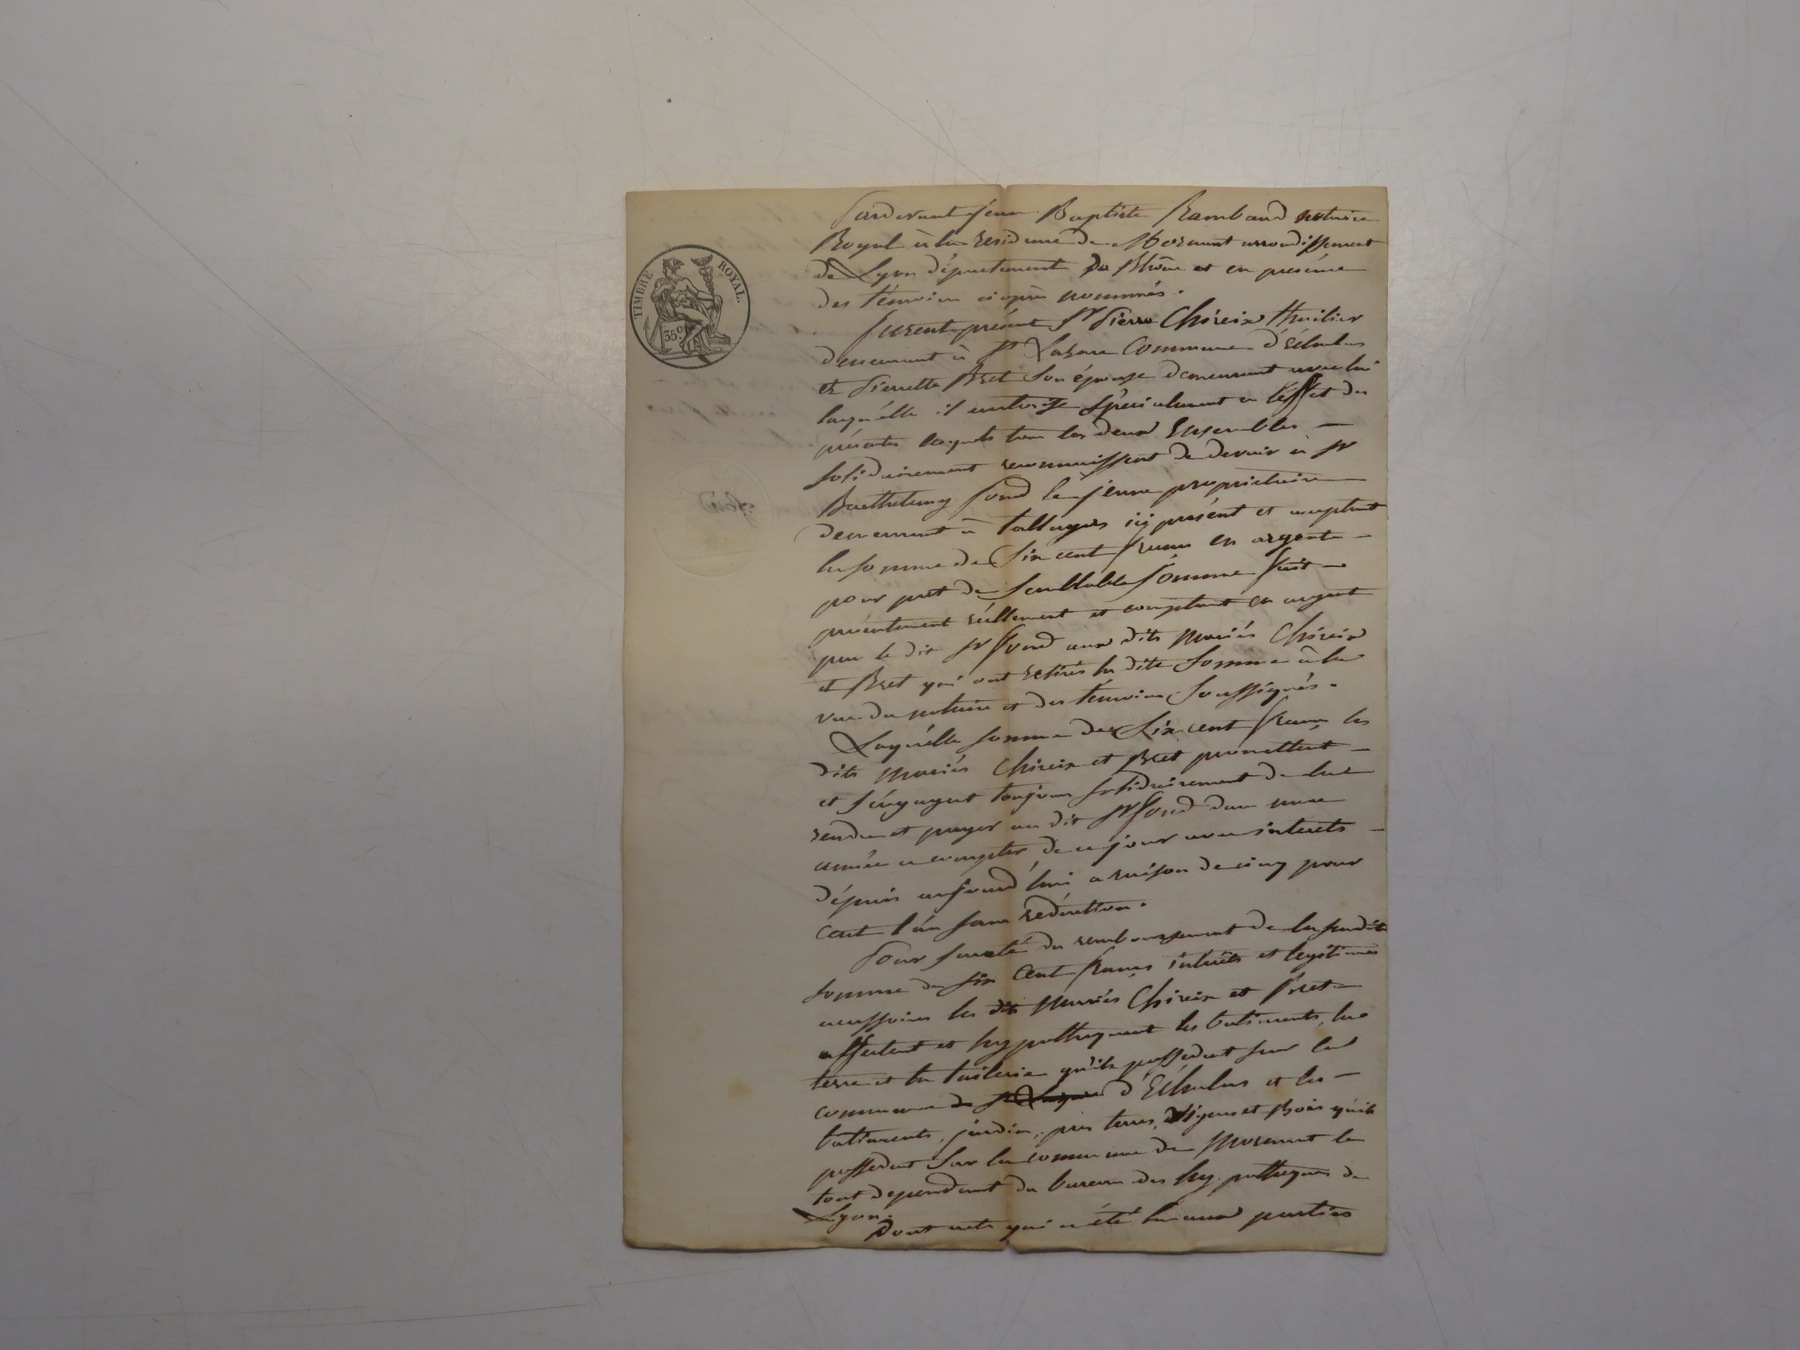 TIMBRE ROYAL.
35 c.
Pardevant Jean Baptiste Rambaud notaire
Royal à la residence de Mornant arrondissement
de Lyon département du Rhône et en présence
des témoins ci après nommés.
furent présent Sr Pierre Chireix thuilier
demeurant à St Lazare Commune d'Echalas
et Pierrette Bret son épouse demeurant avec lui
laquélle il autorise spécialement a l'éffet des
présentes lesquels tous les deux Ensembles —
solidairement reconnaissent de devoir à Sr
Barthelemy fond le jeune propriétaire
demeurant à talluyers icy présent et acceptant
la somme de Six cent francs en argent —
pour pret de semblable sómme fait —
présentement réellement et comptant en argent
par le dit Sr fond aux dits mariés Chireix
et Bret qui ont retirés la dite Somme à la
vue du notaire et des témoins soussignés.
Laquélle somme de Six cent francs les
dits mariés Chireix et Bret promettent —
et s'engagent toujours solidairement de la
rendre et payer au dit Sr fond dans une
année a compter de ce jour avec interets —
dépuis aujourd'hui a raison de cinq pour
cent l'an sans réduction.
Pour sureté du remboursement de la susdite
somme de six cent francs intérêts et legitimes
accessoires les dits mariés Chireix et Bret
affectent et hypothequent les batiments, la
terre et la tuilerie qu'ils possedent sur la
commune de St Lazare d'Echalas et les —
batiments, jardin, prés terres, vignes et Bois qu'ils
possedent sur la commune de Mornant le
tout dependant du bureau des hypotheques de
Lyon.
Dont acte qui a été lu aux parties